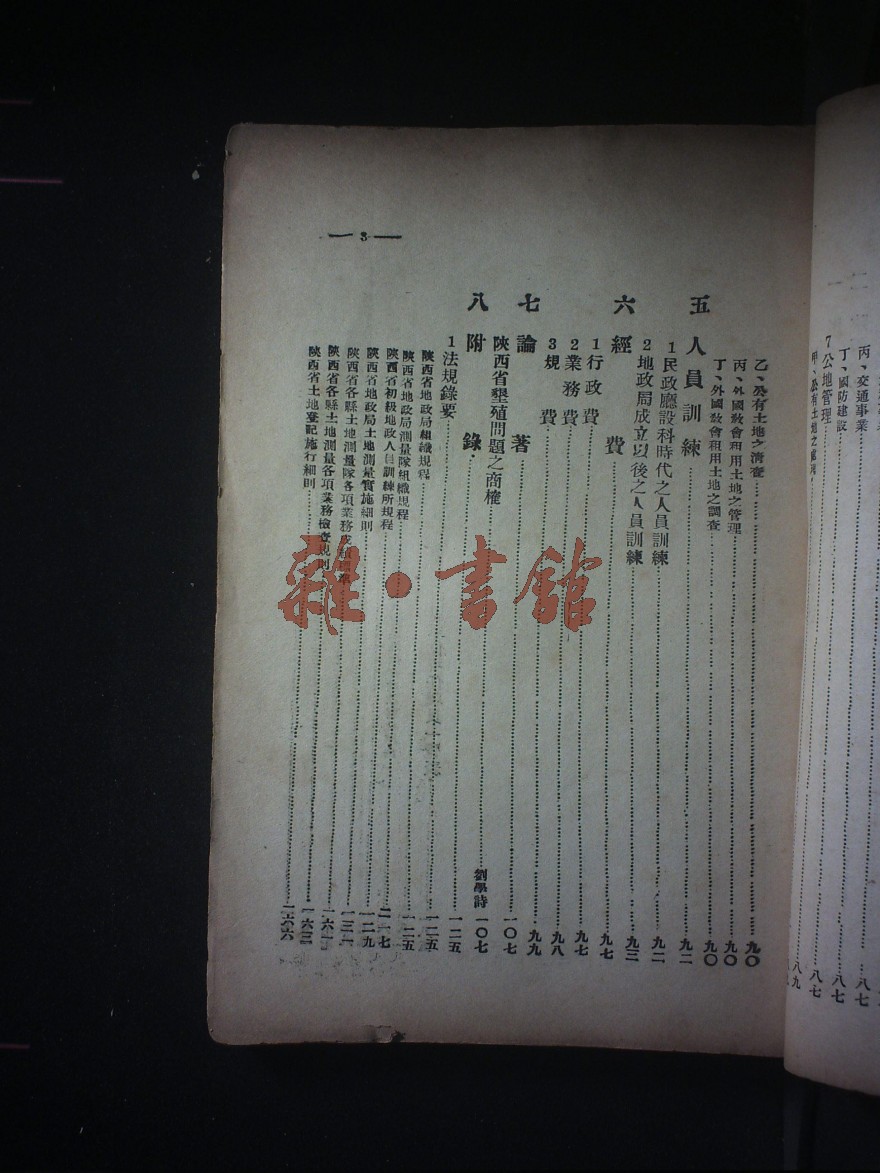 丙、交通事業……八七
丁、國防建設……八七
7公地管理……八七
乙、公有土地之清查……九〇
丙、外國敎會租用土地之管理……九〇
丁、外國敎會租用土地之調查……九〇
五 人員訓練……九二
1民政廳設科時代之人員訓練……九二
2地政局成立以後之人員訓練……九三
六 經費……九七
1行政費……九七
2業務費……九八
3規費……九九
七 論著……一〇七
陝西省墾殖問題之商榷……劉學詩 一〇七
八 附錄……一二五
1法規錄要……一二五
陝西省地政局組織規程……一二五
陝西省地政局測量隊組織規程……二一七
陝西省初級地政人員訓練所規程……一二九
陝西省地政局土地測量實施細則……一三一
陝西省各縣土地測量隊各項業務成績……一六一
陝西省各縣土地測量各項業務檢查規則……一六三
陝西省土地登記施行細則……一六六
— 3 —
雜·書館